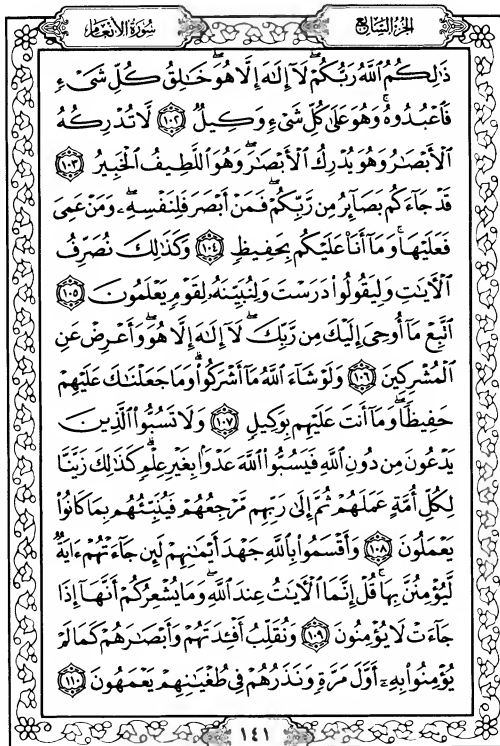 الجزء السابع
سورة الأنعام
ذَٰلِكُمُ اللَّهُ رَبُّكُمْ ۖ لَا إِلَٰهَ إِلَّا هُوَ ۖ خَالِقُ كُلِّ شَيْءٍ
فَاعْبُدُوهُ ۚ وَهُوَ عَلَىٰ كُلِّ شَيْءٍ وَكِيلٌ ١٠٢ لَّا تُدْرِكُهُ
الْأَبْصَارُ وَهُوَ يُدْرِكُ الْأَبْصَارَ ۖ وَهُوَ اللَّطِيفُ الْخَبِيرُ ١٠٣
قَدْ جَاءَكُم بَصَائِرُ مِن رَّبِّكُمْ ۖ فَمَنْ أَبْصَرَ فَلِنَفْسِهِ ۖ وَمَنْ عَمِيَ
فَعَلَيْهَا ۚ وَمَا أَنَا عَلَيْكُم بِحَفِيظٍ ١٠٤ وَكَذَٰلِكَ نُصَرِّفُ
الْآيَاتِ وَلِيَقُولُوا دَرَسْتَ وَلِنُبَيِّنَهُ لِقَوْمٍ يَعْلَمُونَ ١٠٥
اتَّبِعْ مَا أُوحِيَ إِلَيْكَ مِن رَّبِّكَ ۖ لَا إِلَٰهَ إِلَّا هُوَ ۖ وَأَعْرِضْ عَنِ
الْمُشْرِكِينَ ١٠٦ وَلَوْ شَاءَ اللَّهُ مَا أَشْرَكُوا ۗ وَمَا جَعَلْنَاكَ عَلَيْهِمْ
حَفِيظًا ۖ وَمَا أَنتَ عَلَيْهِم بِوَكِيلٍ ١٠٧ وَلَا تَسُبُّوا الَّذِينَ
يَدْعُونَ مِن دُونِ اللَّهِ فَيَسُبُّوا اللَّهَ عَدْوًا بِغَيْرِ عِلْمٍ ۗ كَذَٰلِكَ زَيَّنَّا
لِكُلِّ أُمَّةٍ عَمَلَهُمْ ثُمَّ إِلَىٰ رَبِّهِم مَّرْجِعُهُمْ فَيُنَبِّئُهُم بِمَا كَانُوا
يَعْمَلُونَ ١٠٨ وَأَقْسَمُوا بِاللَّهِ جَهْدَ أَيْمَانِهِمْ لَئِن جَاءَتْهُمْ آيَةٌ
لَّيُؤْمِنُنَّ بِهَا ۚ قُلْ إِنَّمَا الْآيَاتُ عِندَ اللَّهِ ۖ وَمَا يُشْعِرُكُمْ أَنَّهَا إِذَا
جَاءَتْ لَا يُؤْمِنُونَ ١٠٩ وَنُقَلِّبُ أَفْئِدَتَهُمْ وَأَبْصَارَهُمْ كَمَا لَمْ
يُؤْمِنُوا بِهِ أَوَّلَ مَرَّةٍ وَنَذَرُهُمْ فِي طُغْيَانِهِمْ يَعْمَهُونَ ١١٠
١٤١